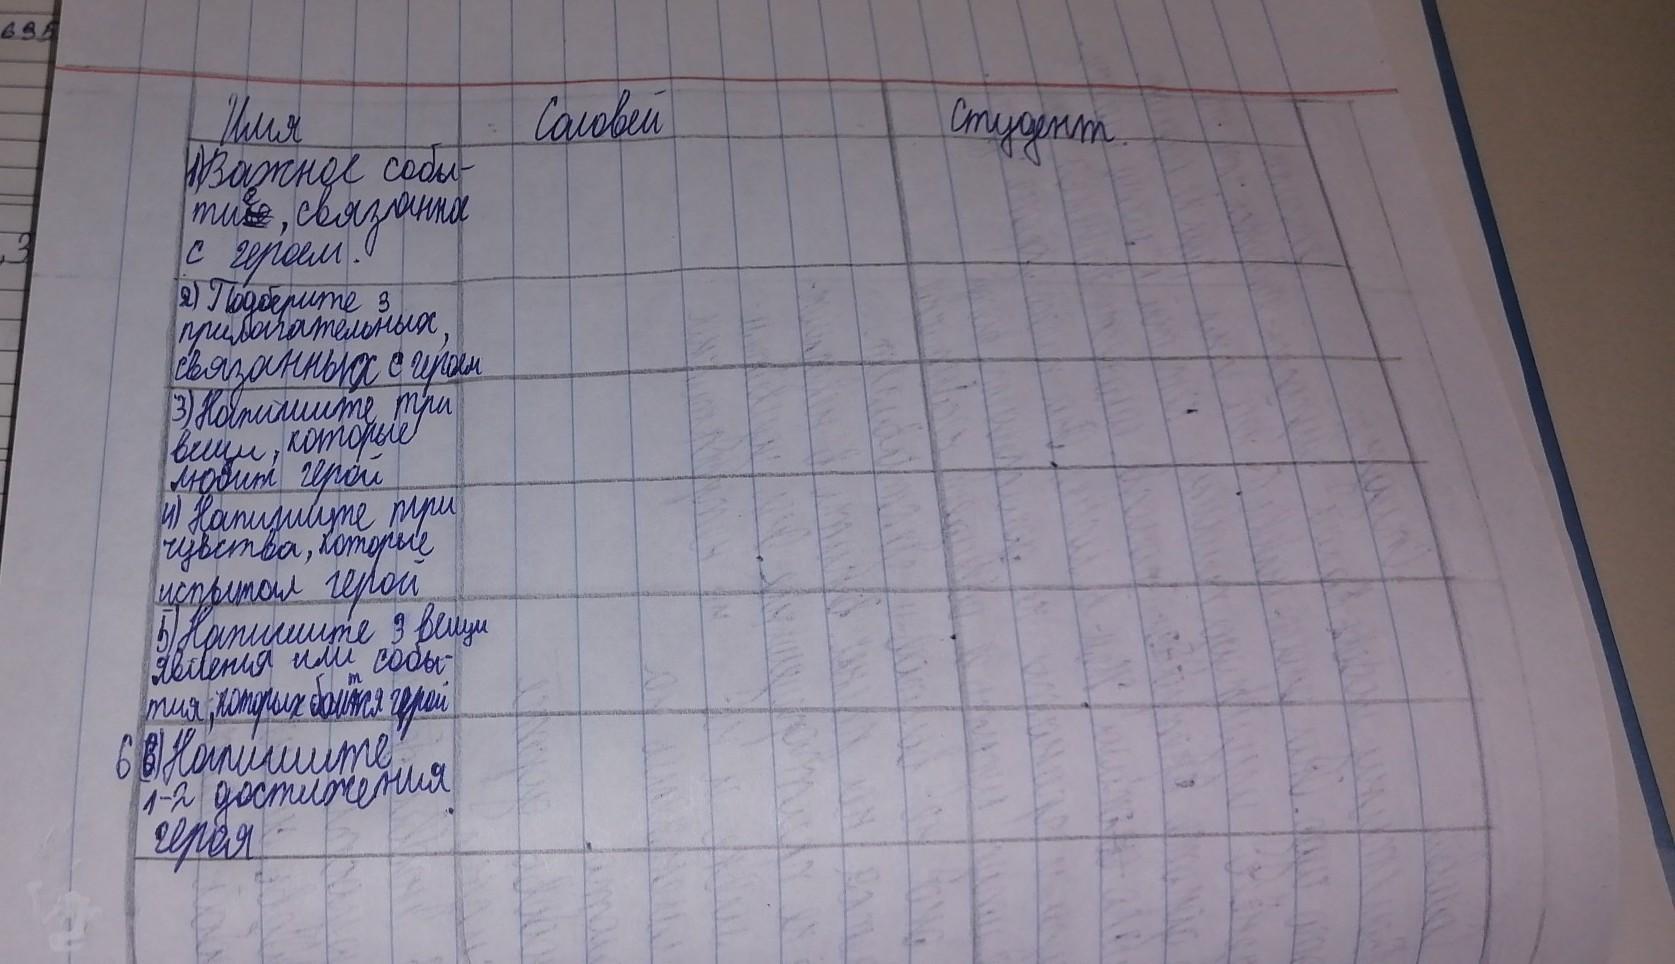 695
Имя Соловей Студент.
1) Важное собы-
тие, связанное
с героем.
2) Подберите 3
прилагательных,
связанных с героем
3) Напишите три
вещи, которые
любит герой
4) Напишите три
чувства, которые
испытал герой
5) Напишите 3 вещи
явления или собы-
тия, которых боится герой
6 6) Напишите
1-2 достижения
героя